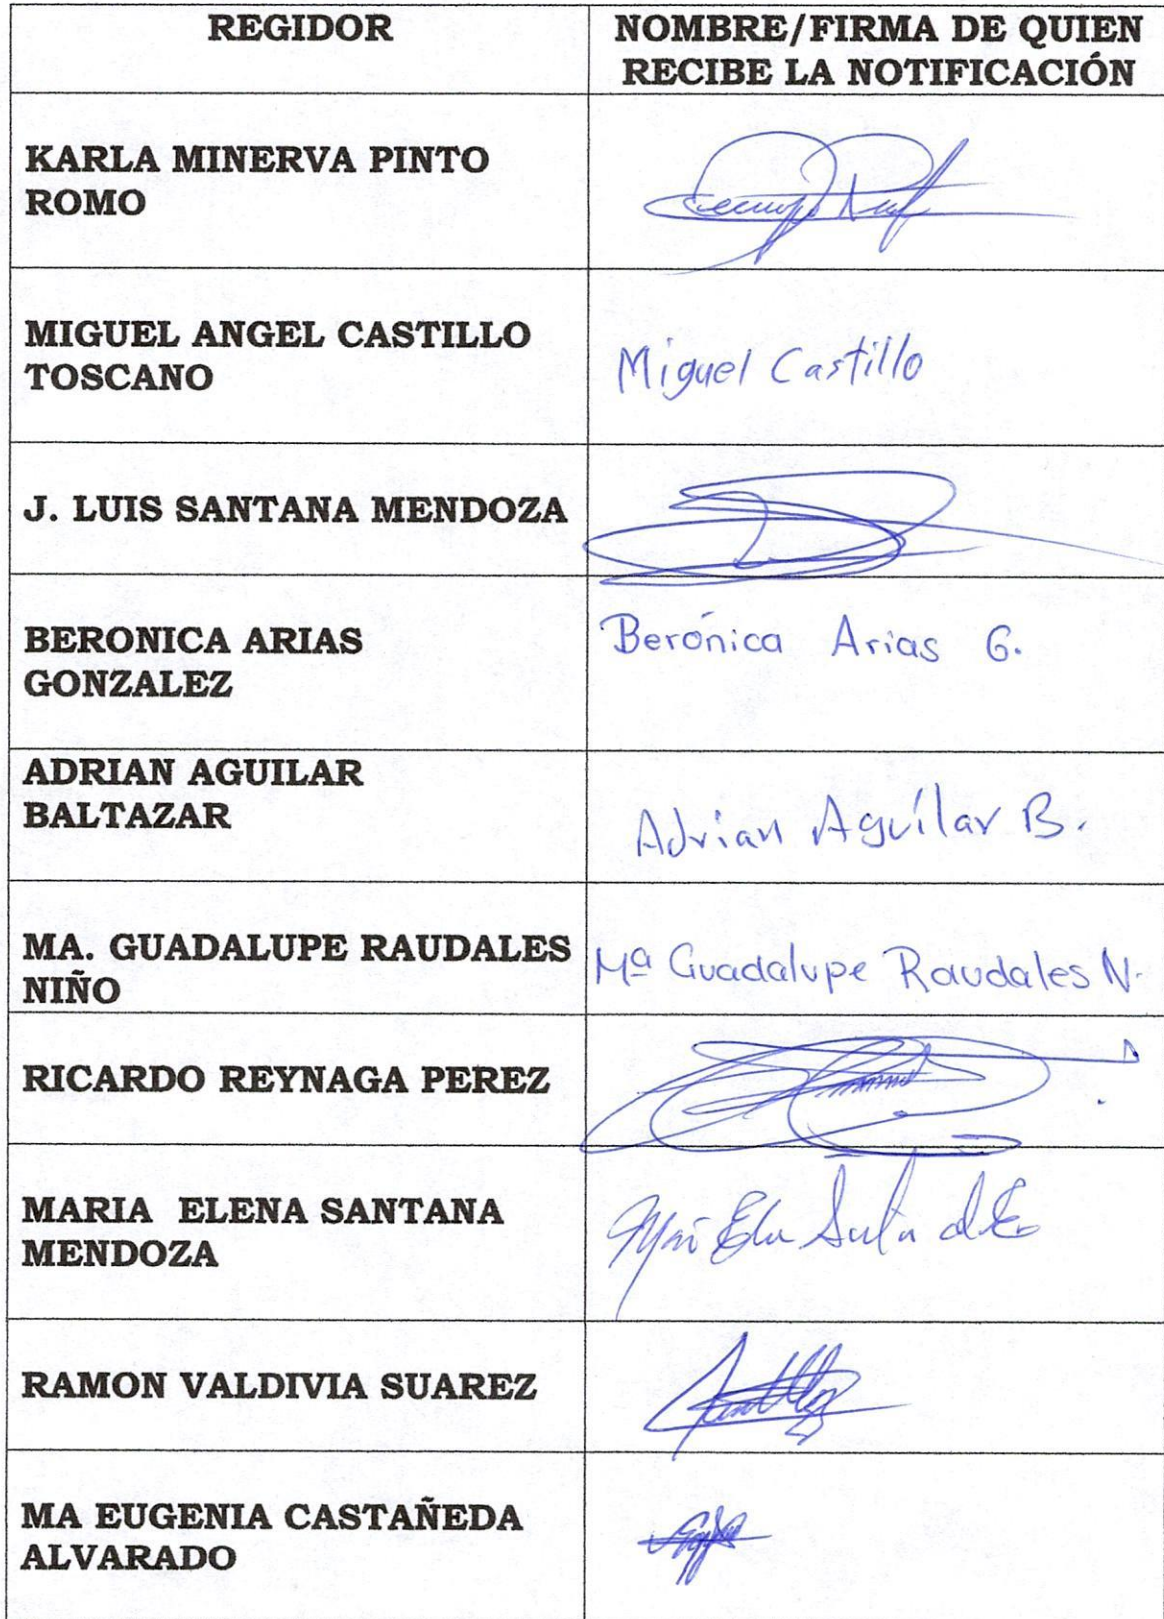 REGIDOR
NOMBRE/FIRMA DE QUIEN
RECIBE LA NOTIFICACIÓN
KARLA MINERVA PINTO
ROMO
MIGUEL ANGEL CASTILLO
TOSCANO
Miguel Castillo
J. LUIS SANTANA MENDOZA
BERONICA ARIAS
GONZALEZ
Berónica Arias G.
ADRIAN AGUILAR
BALTAZAR
Adrian Aguílar B.
MA. GUADALUPE RAUDALES
NIÑO
Mª Guadalupe Raudales N.
RICARDO REYNAGA PEREZ
MARIA  ELENA SANTANA
MENDOZA
RAMON VALDIVIA SUAREZ
MA EUGENIA CASTAÑEDA
ALVARADO